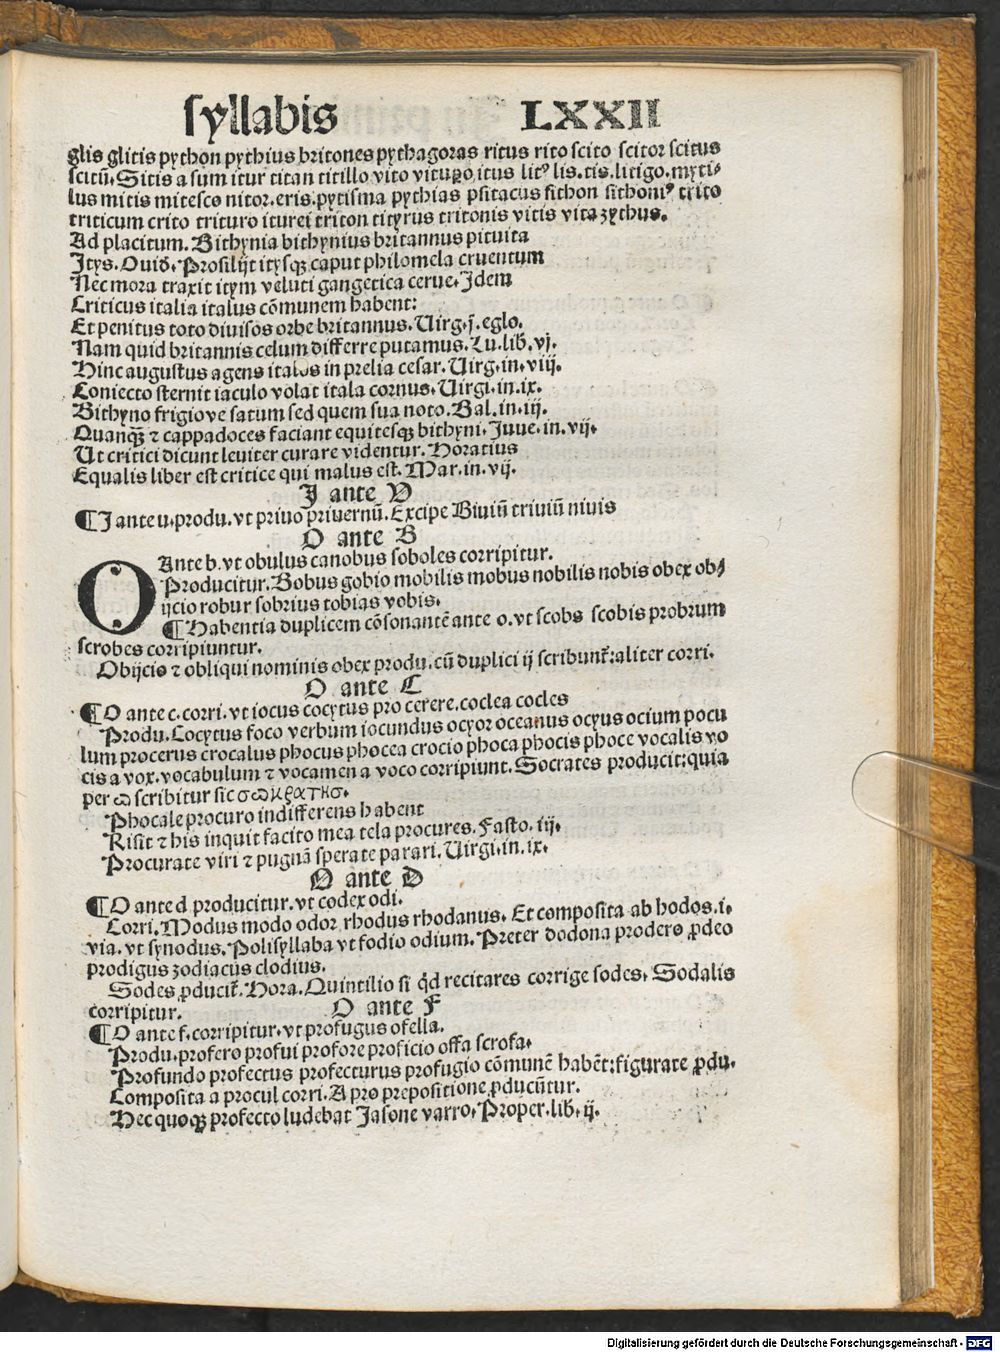 syllabis LXXII
glis glitis python pythius britones pythagoras ritus rito scito scitor scitus
scitū. Sitis a sum itur titan titillo vito vitupo itus litꝰ lis. tis. litigo. myti⸗
lus mitis mitesco nitor. eris. pytisma pythias psitacus sithon sithoniꝰ trito
triticum crito trituro iturei triton tityrus tritonis vitis vita zythus.
Ad placitum. Bithynia bithynius britannus pituita
Itys. Ouid. Prosilijt itysqꝫ caput philomela cruentum
Nec mora traxit itym veluti gangetica cerue. Idem
Criticus italia italus cōmunem habent:
Et penitus toto diuisos orbe britannus. Uirg. j. eglo.
Nam quid britannis celum differre putamus. Lu. lib. vj.
Hinc augustus agens italos in prelia cesar. Uirg. in. viij.
Coniecto sternit iaculo volat itala cornus. Uirgi. in. ix.
Bithyno frigiove satum sed quem sua noto. Bal. in. iij.
Quanqꝫ ⁊ cappadoces faciant equitesqꝫ bithyni. Juue. in. vij.
Ut critici dicunt leuiter curare videntur. Horatius
Equalis liber est critice qui malus est. Mar. in. vij.
I ante V
¶I ante u. produ. vt priuo priuernū. Excipe Biuiū triuiū niuis
O ante B
O Ante b. vt obulus canobus soboles corripitur.
Producitur. Bobus gobio mobilis mobus nobilis nobis obex ob⸗
ijcio robur sobrius tobias vobis.
¶Habentia duplicem cōsonantē ante o. vt scobs scobis probrum
scrobes corripiuntur.
Obijcis ⁊ obliqui nominis obex produ. cū duplici ij scribunt̄: aliter corri.
O ante C
¶O ante c. corri. vt iocus cocytus pro cerere. coclea cocles
Produ. Cocytus foco verbum iocundus ocyor oceanus ocyus ocium pocu
lum procerus crocalus phocus phocea crocio phoca phocis phoce vocalis vo
cis a vox. vocabulum ⁊ vocamen a voco corripiunt. Socrates producit: quia
per ω scribitur sic σωκρατησ.
Phocale procuro indifferens habent
Risit ⁊ his inquit facito mea tela procures. Fasto. iij.
Procurate viri ⁊ pugnā sperate parari. Uirgi. in. ix.
O ante D
¶O ante d producitur. vt codex odi.
Corri. Modus modo odor rhodus rhodanus. Et composita ab hodos. i.
via. vt synodus. Polisyllaba vt fodio odium. Preter dodona prodero ꝓdeo
prodigus zodiacus clodius.
Sodes ꝓducit̄. Hora. Quintilio si qd recitares corrige sodes. Sodalis
corripitur. O ante F
¶O ante f. corripitur. vt profugus ofella.
Produ. profero profui profore proficio offa scrofa.
Profundo profectus profecturus profugio cōmunē habēt: figurate ꝓdu.
Composita a procul corri. A pro prepositione ꝓducūtur.
Hec quoqꝫ profecto ludebat Jasone varro. Proper. lib. ij.
Digitalisierung gefördert durch die Deutsche Forschungsgemeinschaft - DFG